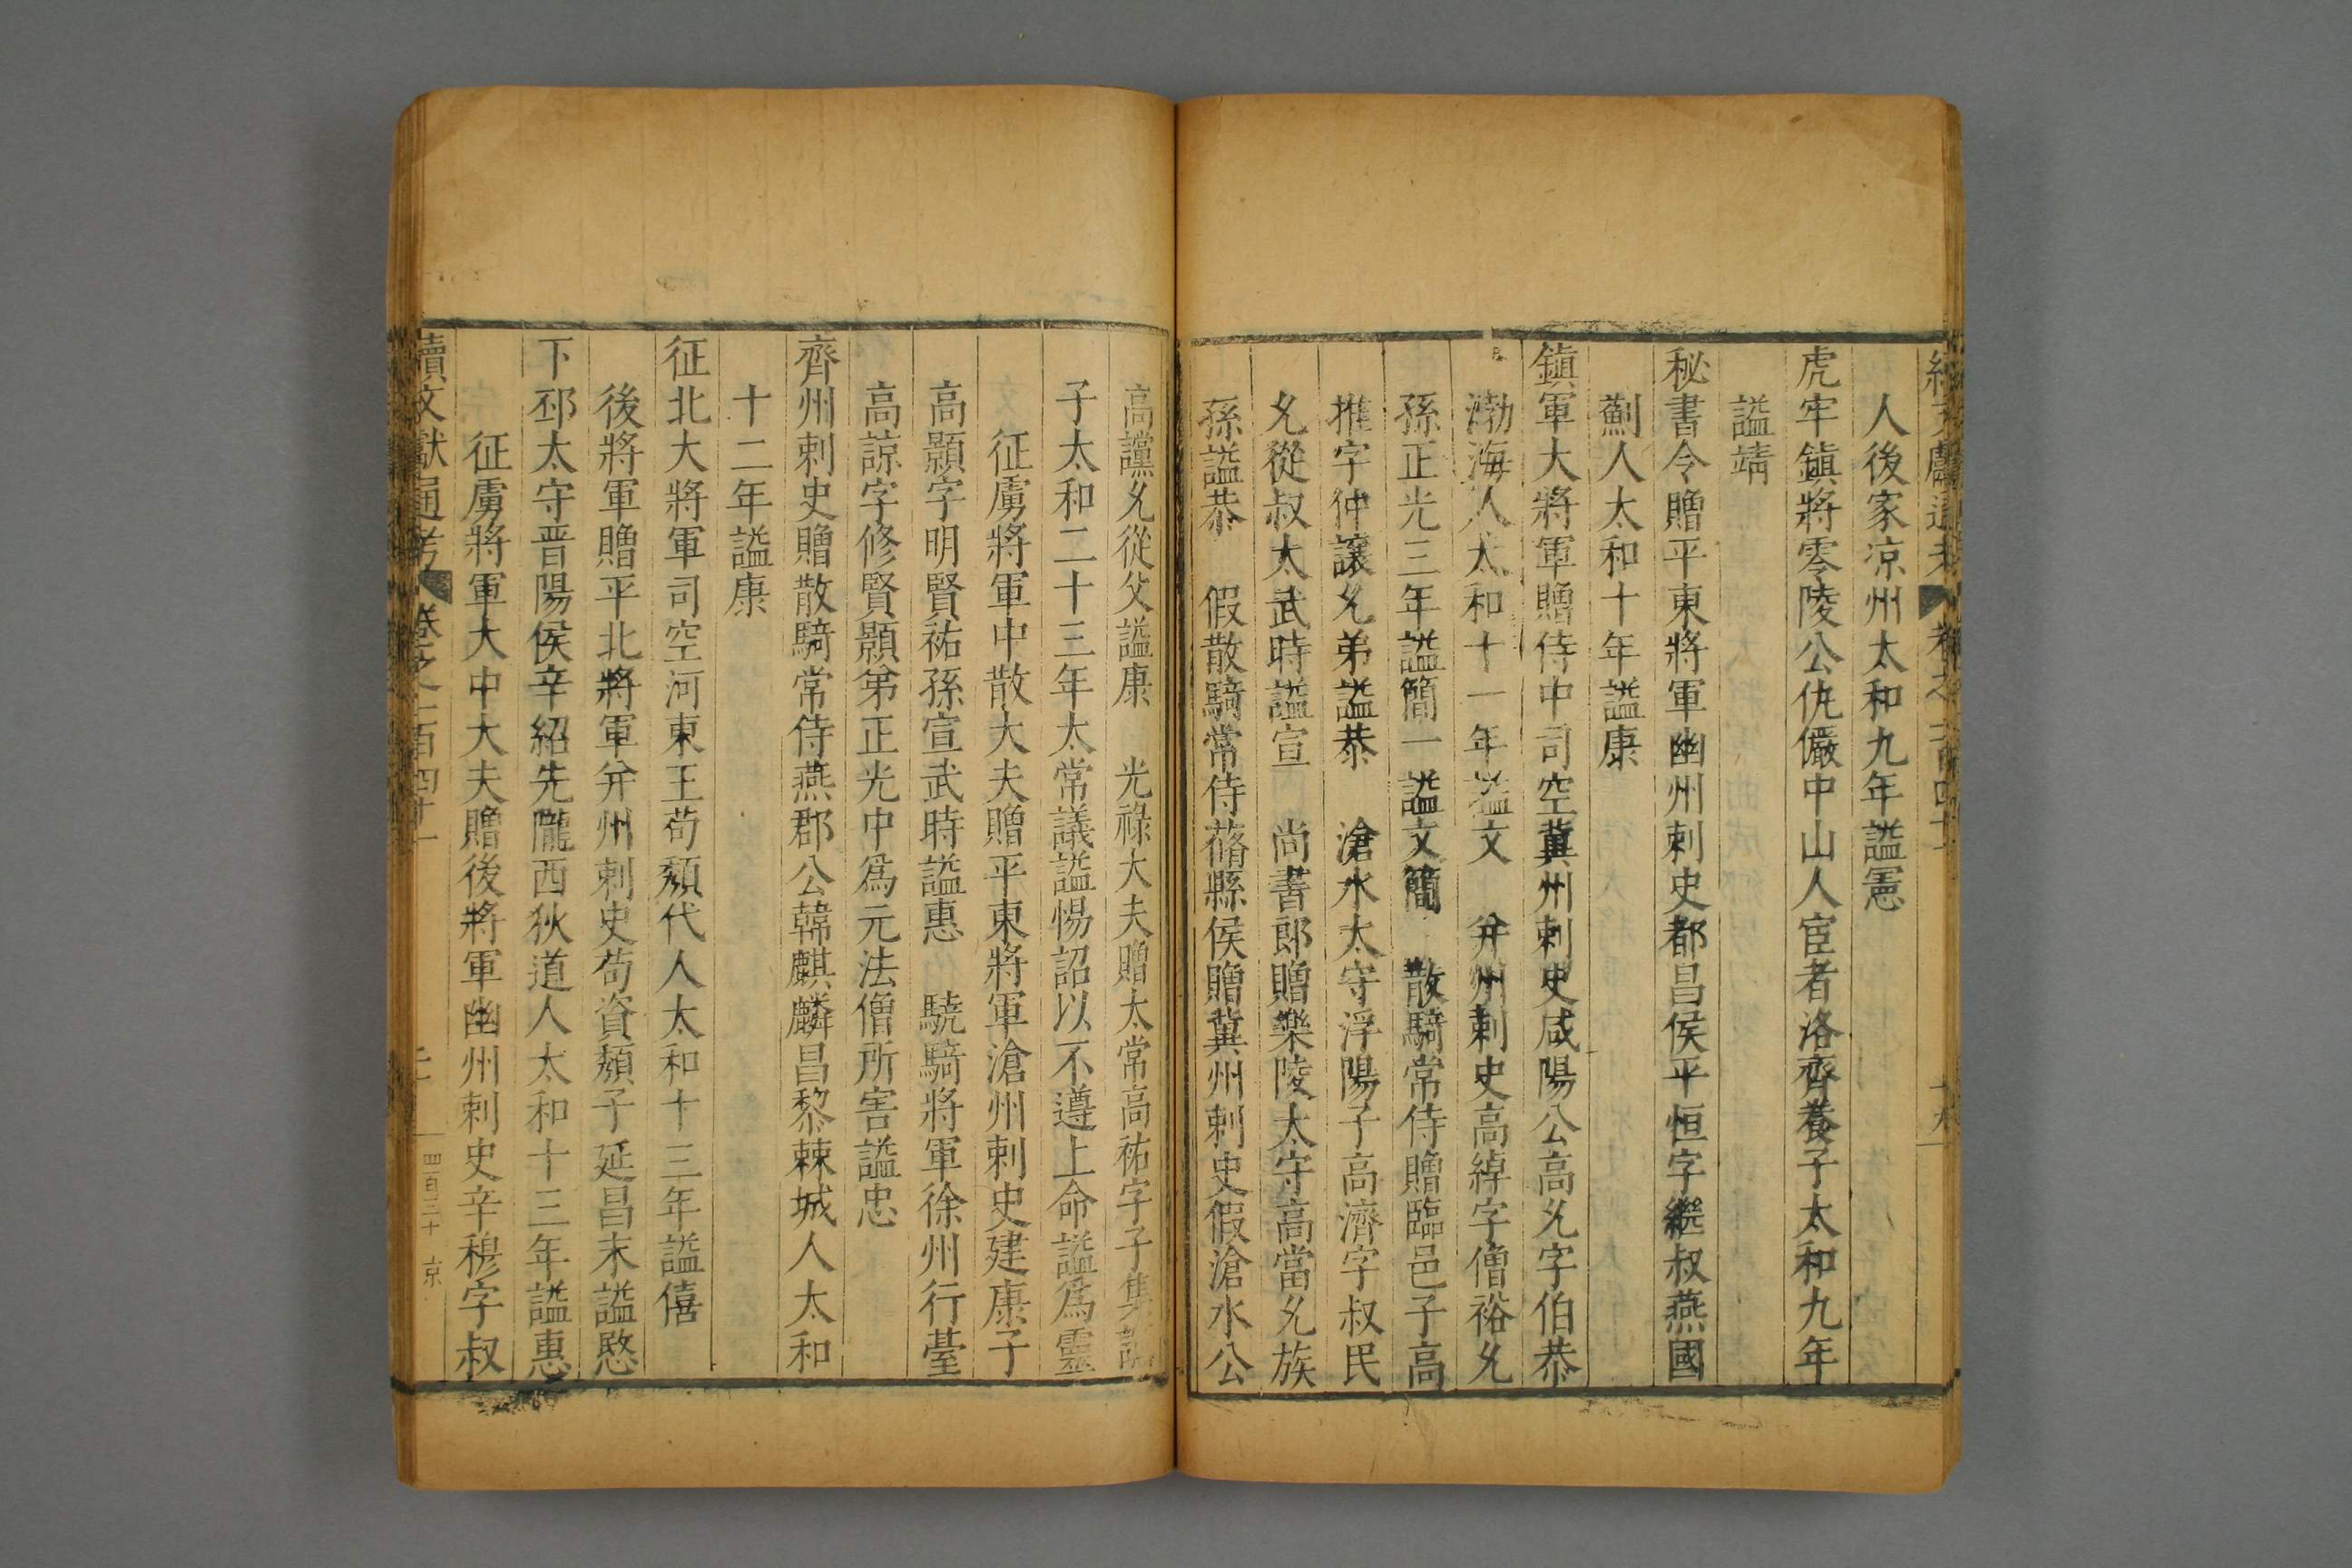 人後家凉州太和九年謚憲
虎牢鎮將零陵公仇儼中山人宦者洛齊養子太和九年
謚靖
秘書令贈平東將軍幽州刺史都昌侯平恒字繼叔燕國
薊人太和十年謚康
鎮軍大將軍贈侍中司空冀州刺史咸陽公高允字伯恭
渤海人太和十一年謚文　并州刺史高綽字僧裕允
孫正光三年謚簡一謚文簡　散騎常侍贈臨邑子高
推字仲讓允弟謚恭　滄水太守浮陽子高濟字叔民
允從叔太武時謚宣　尚書郎贈樂陵太守高當允族
孫謚恭　假散騎常侍蓨縣侯贈冀州刺史假滄水公
高讜允從父謚康　光祿大夫贈太常高祐字子集讜
子太和二十三年太常議謚惕詔以不遵上命謚爲靈
征虜將軍中散大夫贈平東將軍滄州刺史建康子
高顥字明賢祐孫宣武時謚惠　驍騎將軍徐州行臺
高諒字修賢顥弟正光中爲元法僧所害謚忠
齊州刺史贈散騎常侍燕郡公韓麒麟昌黎棘城人太和
十二年謚康
征北大將軍司空河東王苟頹代人太和十三年謚僖
後將軍贈平北將軍并州刺史苟資頹子延昌末謚愍
下邳太守晋陽侯辛紹先隴西狄道人太和十三年謚惠
征虜將軍大中大夫贈後將軍幽州刺史辛穆字叔
續文獻通考　卷之一百四十一　四百三十　京